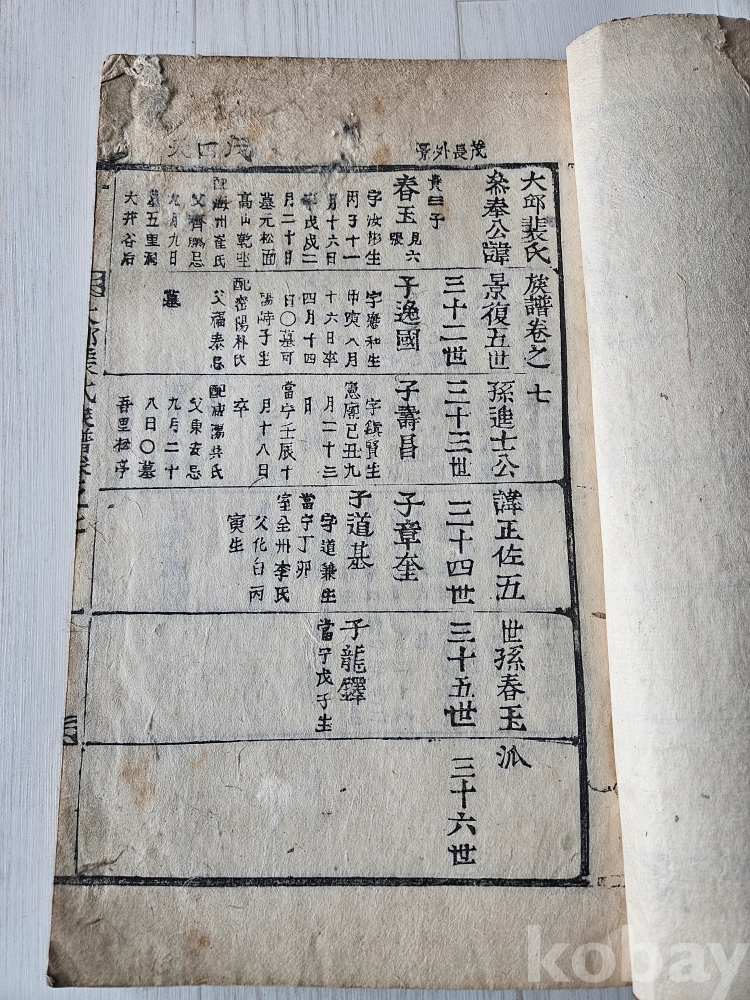 茂長外景
大邱裴氏族譜卷之七
叅奉公諱景復五世孫進士公諱正佐五世孫春玉派
三十二世
三十三世
三十四世
三十五世
三十六世
春玉
見六
字汝彬生
丙子十一
月十六日
卒戊戌二
月二十日
墓元松面
高山乾坐
配海州崔氏
父齊鵬忌
九月九日
墓五里洞
大井谷后
子逸國
字應和生
八月
十六日卒
四月十四
日〇墓可
陽峙子坐
配密陽朴氏
父福泰忌
墓
子壽昌
字鎭賢生
憲廟己丑九
月二十三
日
當宁壬辰十
月十八日
卒
配咸陽吳氏
父東安忌
九月二十
八日〇墓
吾里桂亭
子章奎
子道基
字道兼生
當宁丁卯
室全州李氏
父化白丙
寅生
子龍鐸
當宁戊子生
大邱裴氏族譜卷之七
kobay